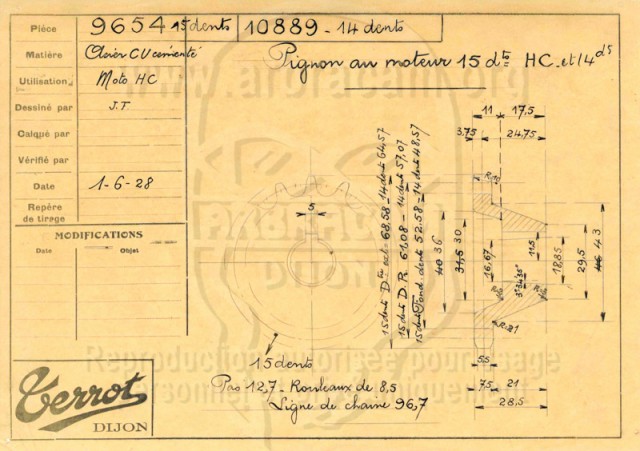 Pièce 9654 15 dents 10889 - 14 dents
Matière Acier CV cémenté
Utilisation Moto HC
Dessiné par J.T
Calqué par
Vérifié par
Date 1-6-28
Repère de tirage
MODIFICATIONS
Date Objet
Pignon au moteur 15 dts HC. et 14 ds
11 17,5
3,75 24,75
5
15 dents Dtre ext. 68,58 - 14 dents 64,57
15 dents D.R 61,08 - 14 dents 57,07
15 dents Fond. dents 52.58 - 14 dents 48,57
40 36
31,5 30
16,67
11,5
18,85
29,5
46 43
5,5
7,5 21
28,5
15 dents
Pas 12,7 - Rouleaux de 8,5
Ligne de chaine 96,7
Terrot
DIJON
www.arbracam.org
ARBRACAM
DIJON
Reproduction autorisée pour usage
personnel uniquement